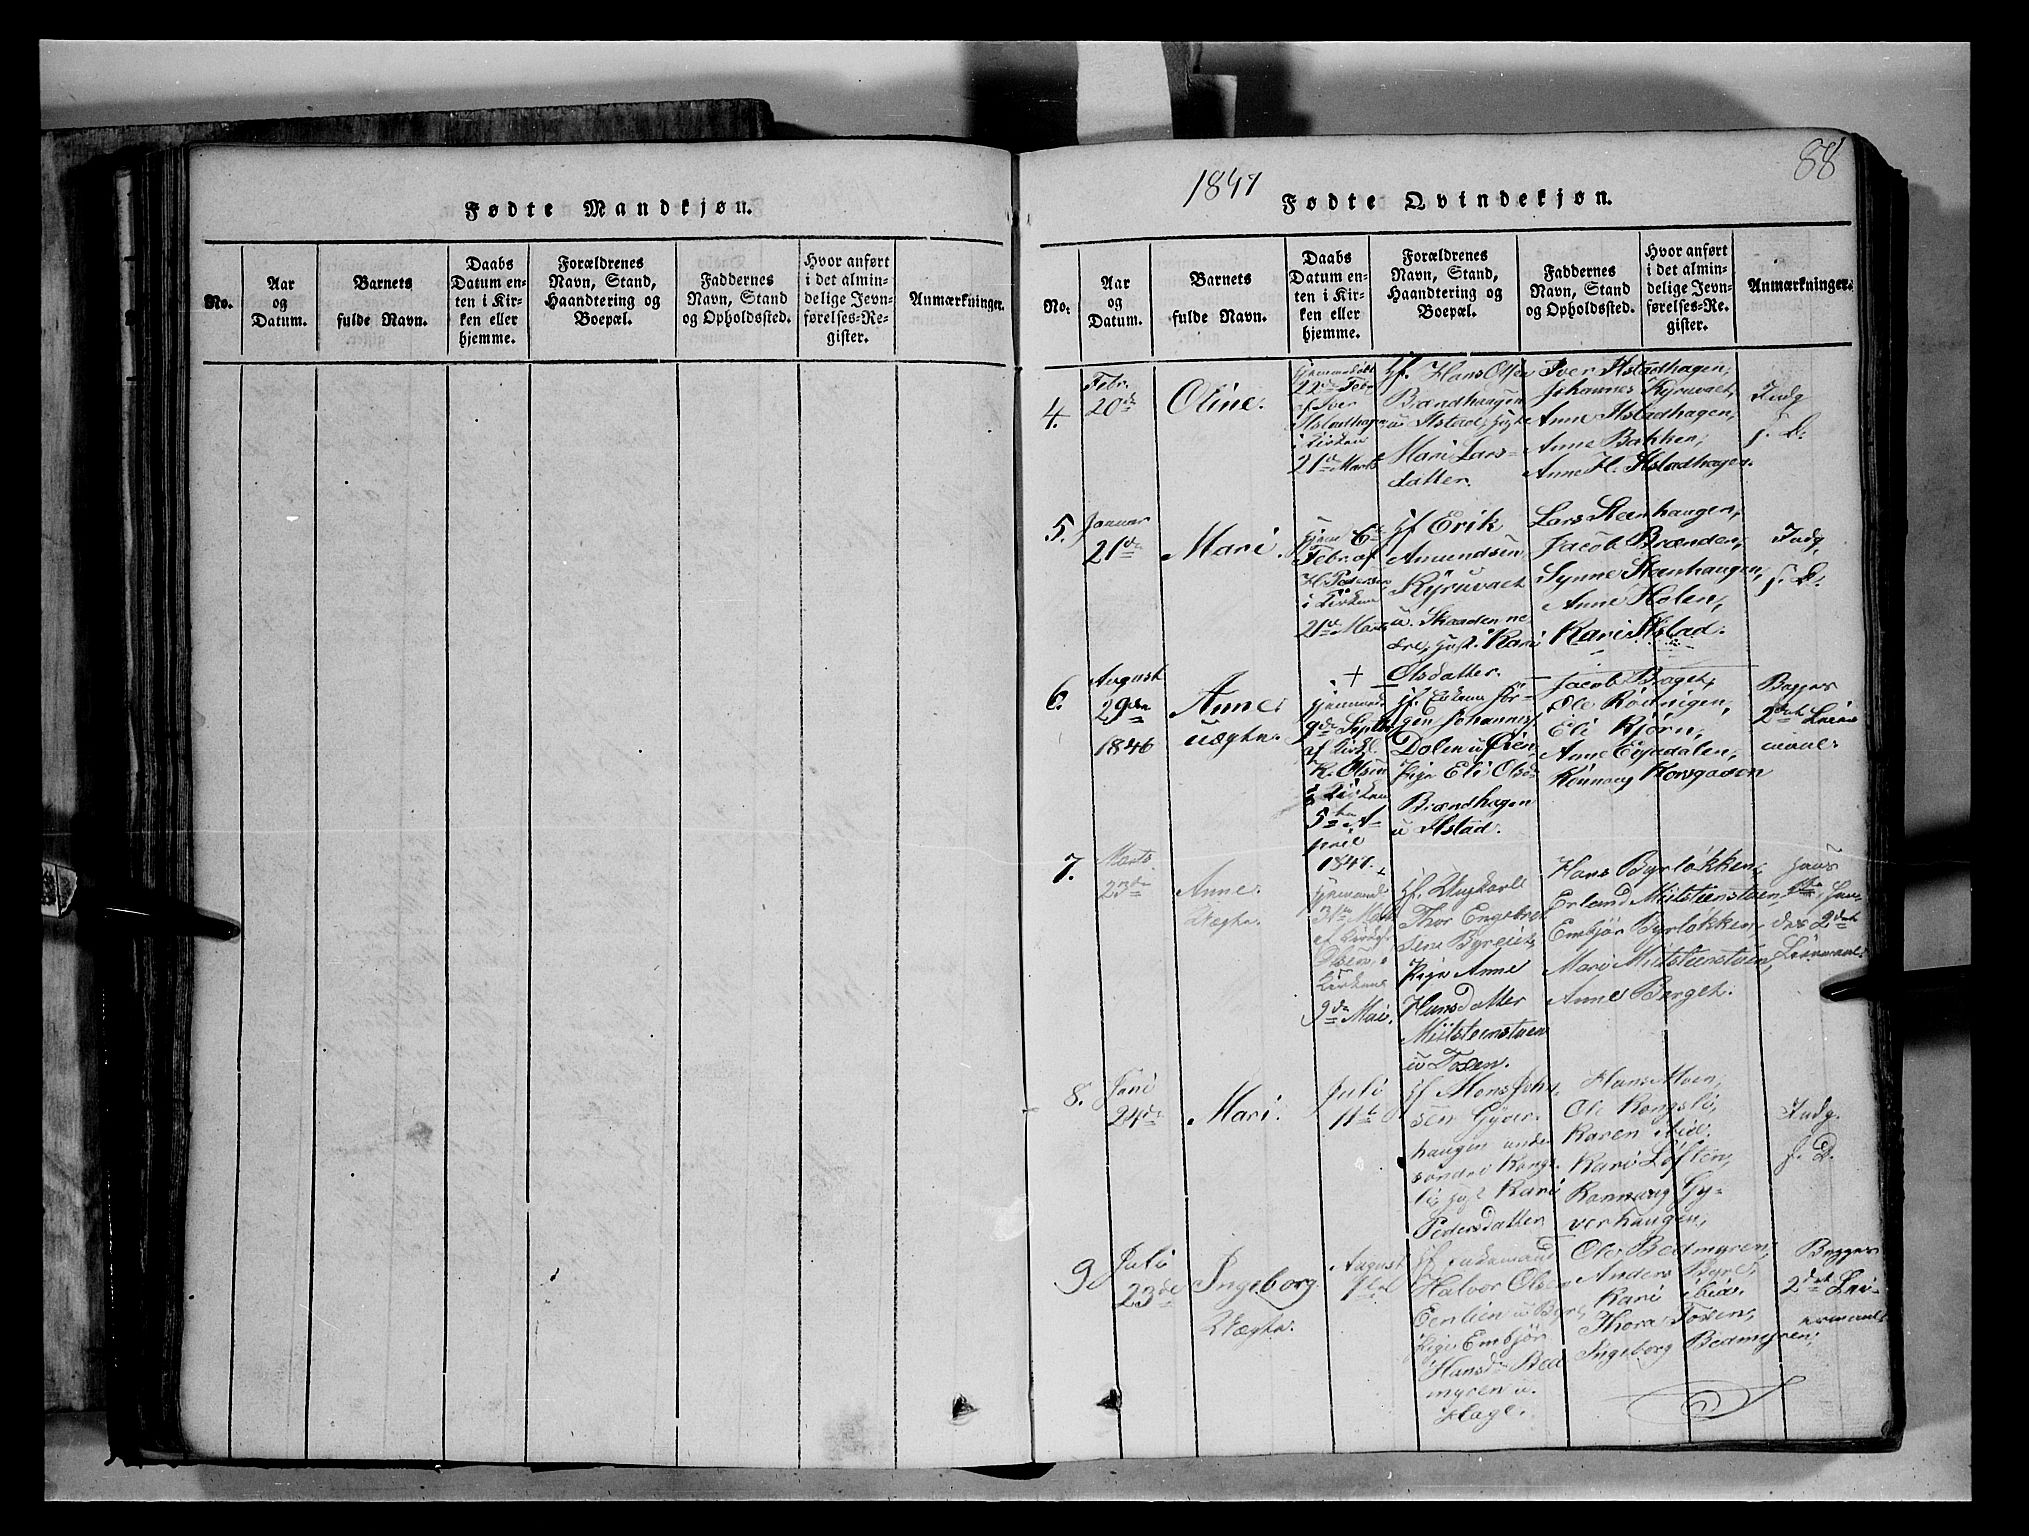 88
1847
Fødte Mandkjøn.
No.
Aar
og
Datum.
Barnets
fulde Navn.
Daabs
Datum en-
ten i Kir-
ken eller
hjemme.
Forældrenes
Navn, Stand,
Haandtering og
Boepæl.
Faddernes
Navn, Stand
og Opholdssted.
Hvor anført
i det almin-
delige Jevn-
førelses-Re-
gister.
Anmærkninger.
Fødte Qvindekjøn.
No.
Aar
og
Datum.
Barnets
fulde Navn.
Daabs
Datum en-
ten i Kir-
ken eller
hjemme.
Forældrenes
Navn, Stand,
Haandtering og
Boepæl.
Faddernes
Navn, Stand
og Opholdssted.
Hvor anført
i det almin-
delige Jevn-
førelses-Re-
gister.
Anmærkninger.
4.
Febr.
20de
Oline.
hjemmedöbt
22de Febr
af Iver
Ilstadhagen
i Kirken
21de Marts
Hans Olsen
Brændhaugen
u Ilstad,
Mari Lars-
datter.
Iver Ilstadhagen,
Johannes Kyruvaet,
Anne Ilstadhagen,
Anne Bakken,
Anne H. Ilstadhagen.
Indg
f. D.
5.
Januar
21de
Mari.
6te
Febr af
H. Pedersen
i Kirken
21de Marts
Erik
Amundsen
Kyruvaet
u. Skaaden ne-
dre, Kari
Olsdatter.
Lars Steenhaugen,
Jacob Brænden,
Synne Steenhaugen,
Anne Holen,
Kari Ilstad.
Indg.
f. D.
6.
August
29de
1846
Anne
uægte.
+
9de Septbr
af
K. Olsen
i Kirken
5te A-
pril
1847.
Jör-
gen Johannes
Dolen u Öien,
Pige Eli Olsd
Brændhagen
u Ilstad.
Jacob Braget,
Ole Rönnigen,
Eli Kjörn,
Anne Eisadalen,
Rönnaug Korsgaden
Begges
2det Leier
maal.
7.
Marts
23de
Anne
Uægte.
af Kirkes.
Olsen, i
Kirken
9de Mai.
Ungkarl
Thor Engebret
sen Byreiet,
Pige Anne
Hansdatter
Midtsteenstuen
u Tosen.
Hans Byrløkken,
Erland Midtsteenstuen,
Embjör Byrløkken,
Mari Midtsteenstuen,
Anne Berget.
hans
1ste, hen-
des 2det
Leiermaal.
8.
Juni
24de
Mari.
Juli
11te
Mons Joh-
sen Gyver-
haugen under
söndre Kongs-
li, Kari
Pedersdatter
Hans Moen,
Ole Kongsli,
Karen
Kari Löften,
Rönnaug Gy-
verhaugen,
Indg.
f. D.
9.
Juli
23de
Ingeborg
Uægte.
August
1ste
Enkemand
Halvor Olsen
Eenlien u Byre,
Pige Embjör
Hansd Bed
myren u.
Hage.
Ole Bedmyren,
Anders Byre,
Kari ibid.
Thora Tosen,
Ingeborg Bedmyren,
Begges
2det Lei-
ermaal